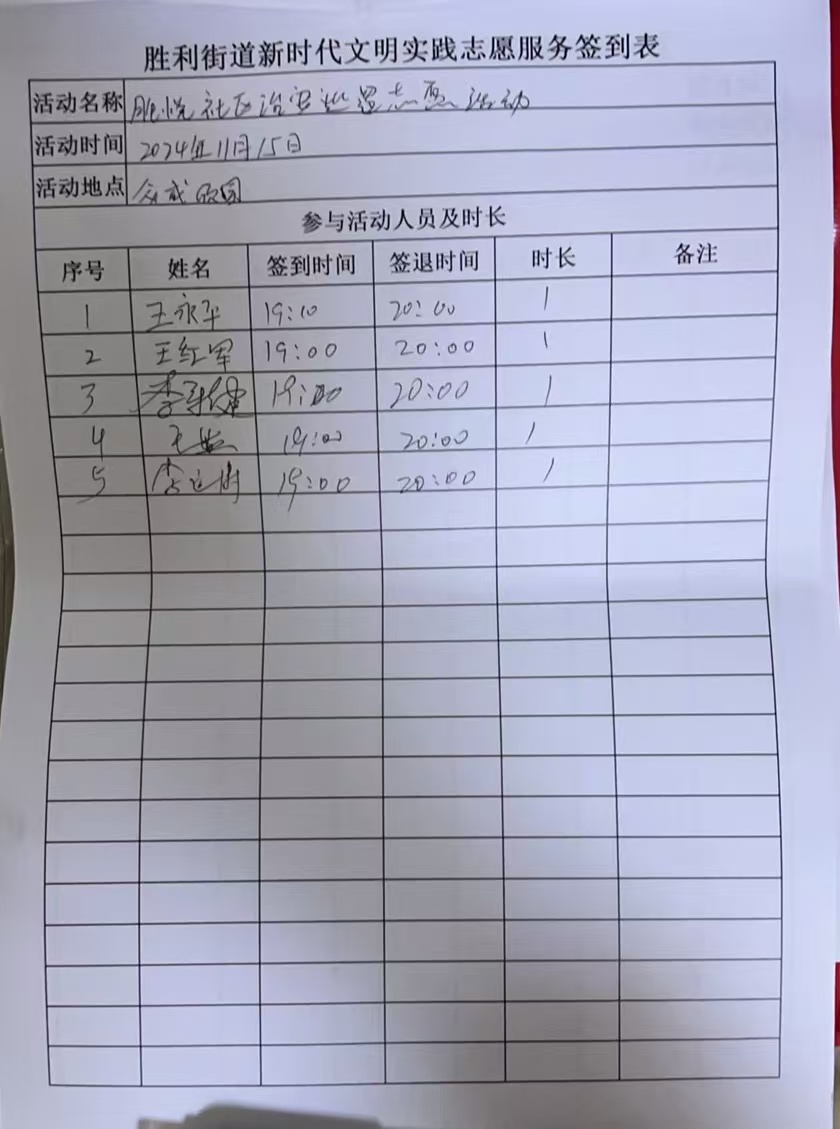 胜利街道新时代文明实践志愿服务签到表
活动名称 胜悦社区治安巡逻志愿活动
活动时间 2024年11月15日
活动地点 众成
参与活动人员及时长
序号 姓名 签到时间 签退时间 时长 备注
1 王永平 19:10 20:00 1
2 王红军 19:00 20:00 1
3 李 19:00 20:00 1
4 王 19:00 20:00 1
5 李 19:00 20:00 1